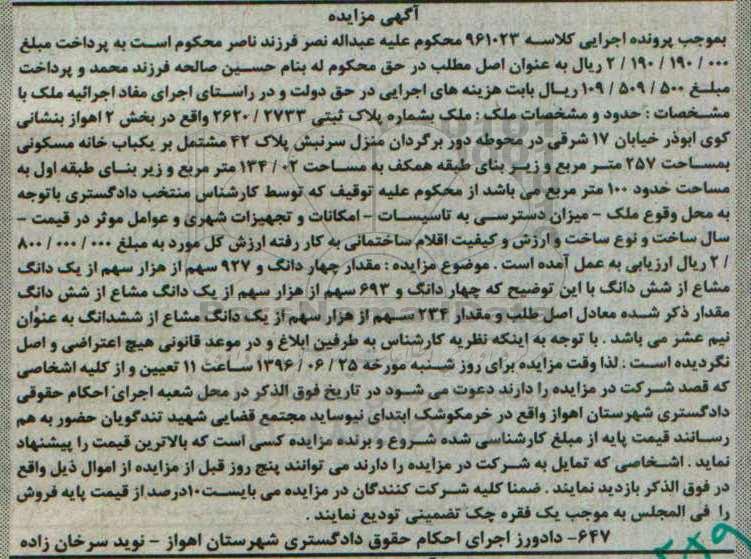 آگهی مزایده
بموجب پرونده اجرایی کلاسه ۹۶۱۰۲۳ محکوم علیه عبداله نصر فرزند ناصر محکوم است به پرداخت مبلغ
۲/۱۹۰/۱۹۰/۰۰۰ ریال به عنوان اصل مطلب در حق محکوم له بنام حسین صالحه فرزند محمد و پرداخت
مبلغ ۱۰۹/۵۰۹/۵۰۰ ریال بابت هزینه های اجرایی در حق دولت و در راستای اجرای مفاد اجرائیه ملک با
مشخصات : حدود و مشخصات ملک : ملک بشماره پلاک ثبتی ۲۶۲۰/۲۷۳۳ واقع در بخش ۲ اهواز بنشانی
کوی ابوذر خیابان ۱۷ شرقی در محوطه دور برگردان منزل سرنبش پلاک ۴۲ مشتمل بر یکباب خانه مسکونی
بمساحت ۲۵۷ متر مربع و زیر بنای طبقه همکف به مساحت ۱۳۴/۰۲ متر مربع و زیر بنای طبقه اول به
مساحت حدود ۱۰۰ متر مربع می باشد از محکوم علیه توقیف که توسط کارشناس منتخب دادگستری باتوجه
به محل وقوع ملک - میزان دسترسی به تاسیسات - امکانات و تجهیزات شهری و عوامل موثر در قیمت -
سال ساخت و نوع ساخت و ارزش و کیفیت اقلام ساختمانی به کار رفته ارزش کل مورد به مبلغ ۸۰۰/۰۰۰/۰۰۰
/۲ ریال ارزیابی به عمل آمده است . موضوع مزایده : مقدار چهار دانگ و ۹۲۷ سهم از هزار سهم از یک دانگ
مشاع از شش دانگ با این توضیح که چهار دانگ و ۶۹۳ سهم از هزار سهم از یک دانگ مشاع از شش دانگ
مقدار ذکر شده معادل اصل طلب و مقدار ۲۳۴ سهم از هزار سهم از یک دانگ مشاع از ششدانگ به عنوان
نیم عشر می باشد . با توجه به اینکه نظریه کارشناس به طرفین ابلاغ و در موعد قانونی هیچ اعتراضی و اصل
نگردیده است : لذا وقت مزایده برای روز شنبه مورخه ۱۳۹۶/۰۶/۲۵ ساعت ۱۱ تعیین و از کلیه اشخاصی
که قصد شرکت در مزایده را دارند دعوت می شود در تاریخ فوق الذکر در محل شعبه اجرای احکام حقوقی
دادگستری شهرستان اهواز واقع در خرمکوشک ابتدای نیوساید مجتمع قضایی شهید تندگویان حضور به هم
رسانند قیمت پایه از مبلغ کارشناسی شده شروع و برنده مزایده کسی است که بالاترین قیمت را پیشنهاد
نماید . اشخاصی که تمایل به شرکت در مزایده را دارند می توانند پنج روز قبل از مزایده از اموال ذیل واقع
در فوق الذکر بازدید نمایند . ضمنا کلیه شرکت کنندگان در مزایده می بایست۱۰درصد از قیمت پایه فروش
را فی المجلس به موجب یک فقره چک تضمینی تودیع نمایند .
۶۴۷- دادورز اجرای احکام حقوق دادگستری شهرستان اهواز - نوید سرخان زاده